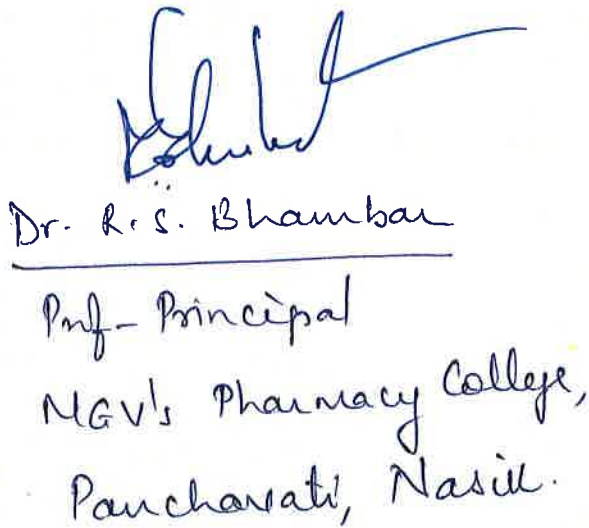 Dr. R. S. Bhambar
Prof- Principal
MGV's Pharmacy College,
Panchavati, Nasik.